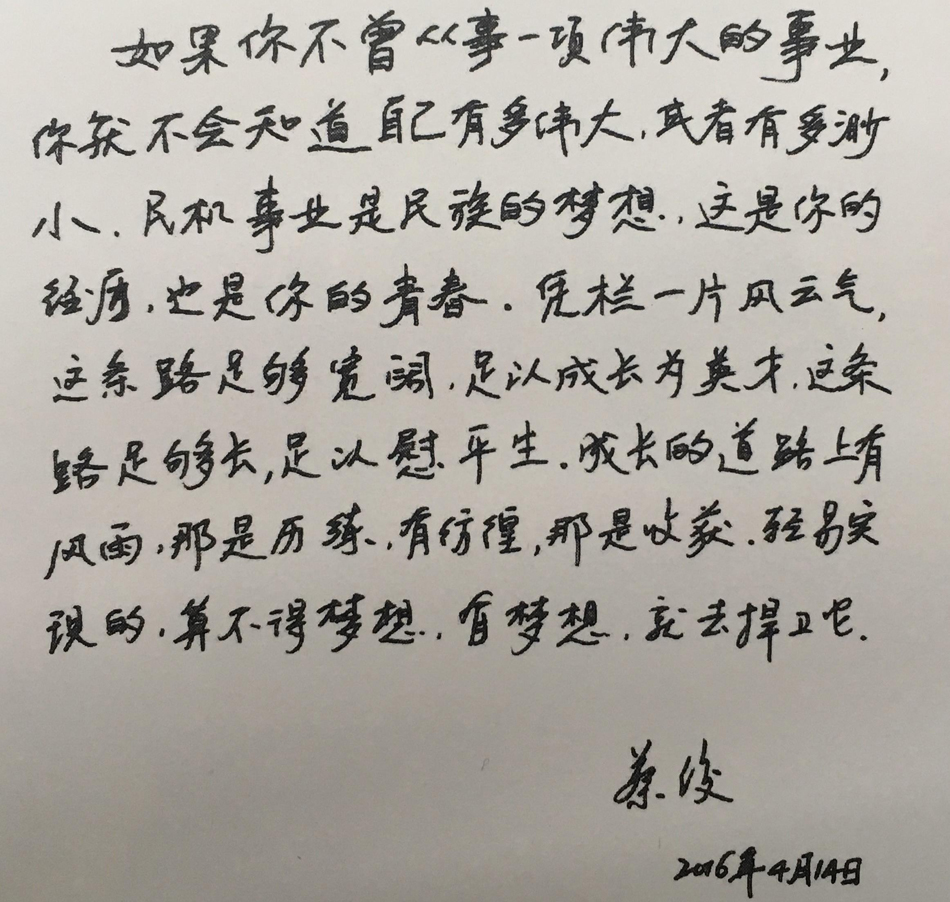 如果你不曾从事一项伟大的事业,
你就不会知道自己有多伟大,或者有多渺
小.民机事业是民族的梦想,这是你的
经历,也是你的青春.凭栏一片风云气,
这条路足够宽阔,足以成长为英才.这条
路足够长,足以慰平生.成长的道路上有
风雨,那是历练,有彷徨,那是收获.轻易实
现的,算不得梦想,有梦想,就去捍卫它.
蔡俊
2016年4月14日